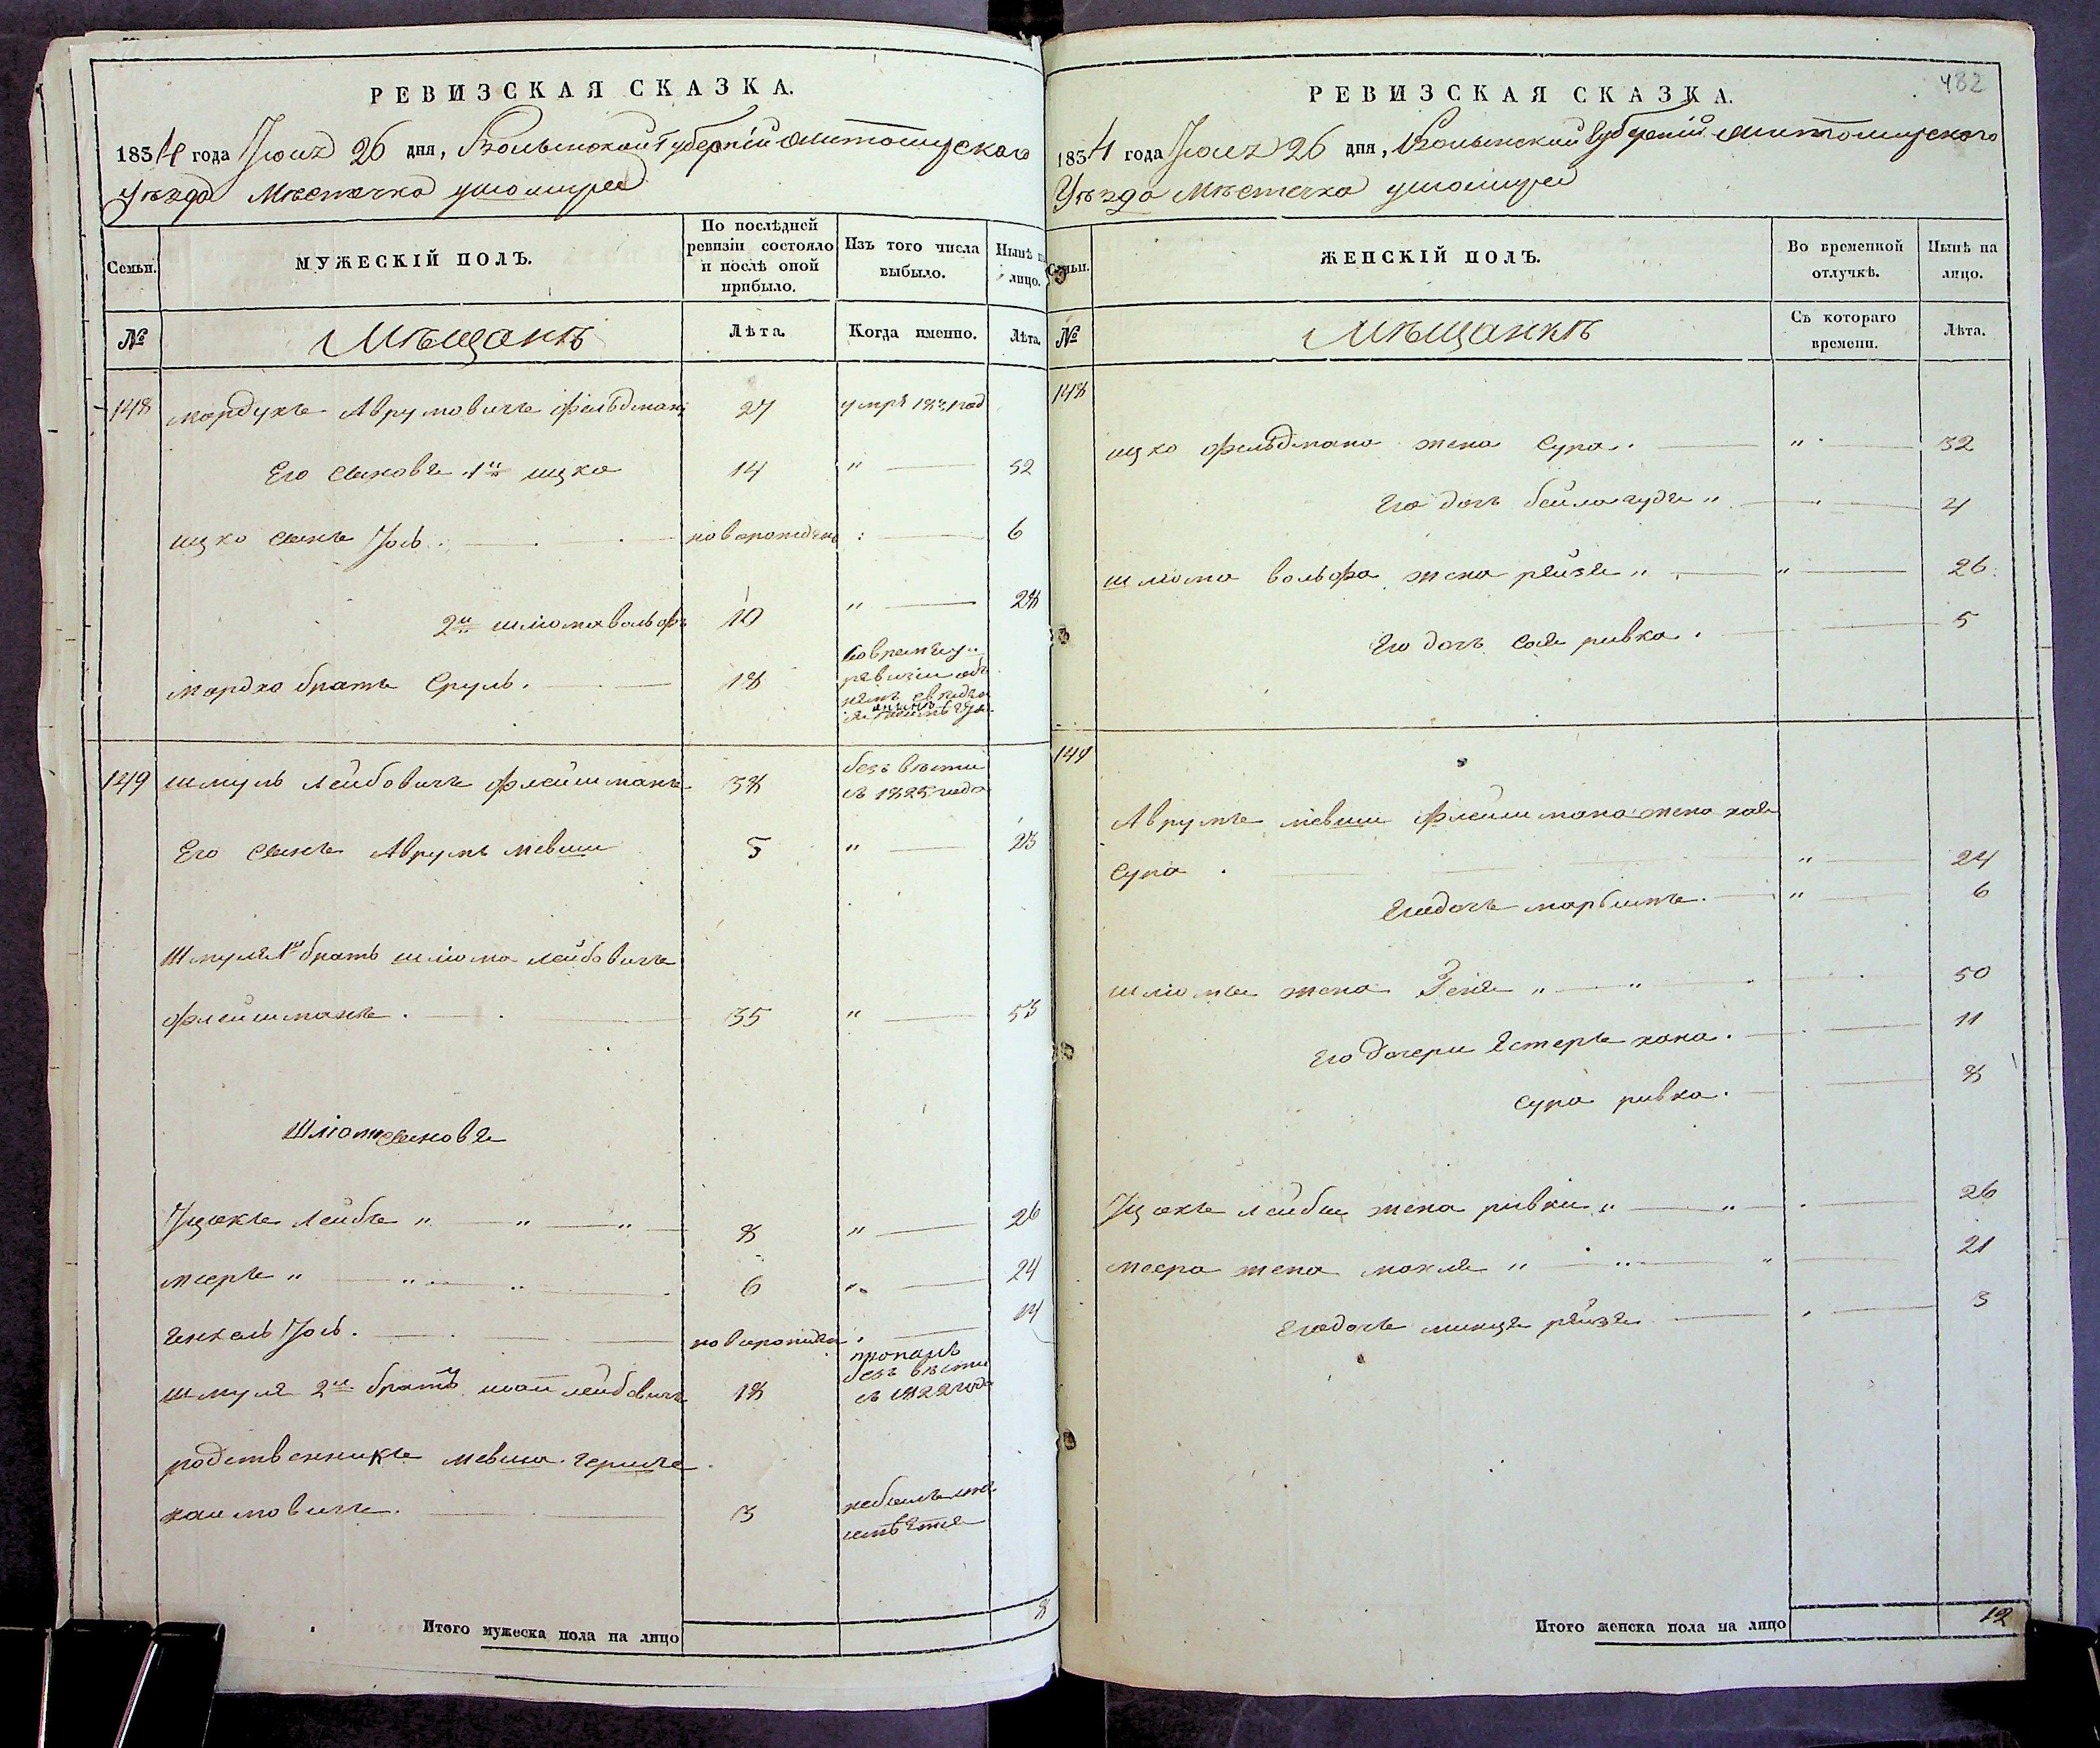 РЕВИЗСКАЯ СКАЗКА.
1834 года Июня 26 дня, Волынской Губернiи Житомирскаго
Уѣзда Мѣстечка ушомира
Семьи.
МУЖЕСКІЙ ПОЛЪ.
По послѣдней ревизіи состояло и послѣ оной прибыло.
Изъ того числа выбыло.
Нынѣ на лицо.
№
Мѣщанъ
Лѣта.
Когда именно.
Лѣта.
148 мордухъ Аврумовичъ фельдманъ 27 умръ год
Его сыновъя 1й ицко 14 " 32
ицко сынъ Іось новорожденъ 6
2й шліома вольфъ 10 " 28
мордко братъ Сруль. 18
ревизіи
149 шмуль Лейбовичъ флейшманъ 38 безъ вѣсти
съ 1825 года
Его сынъ Аврумъ мевши 5 " 23
Шмуля 1й братъ шліома лейбовичъ
флейшманъ. 35 " 53
Шліомы сыновъя
Іцекъ Лейбъ " " " 8 " 26
мееръ " " " 6 " 24
Іось. новорожден 14
шмуля 2й братъ лейбовичъ 18 пропалъ
безъ вѣсти
съ 1822 года
родственникъ мевша гершъ
хаимовичъ. 3
Итого мужеска пола на лицо 8
482
РЕВИЗСКАЯ СКАЗКА.
1834 года Июня 26 дня, Волынской Губернiи Житомирскаго
Уѣзда Мѣстечка ушомира
Семьи.
ЖЕНСКІЙ ПОЛЪ.
Во временной отлучкѣ.
Нынѣ на лицо.
№
Мѣщанкѣ
Съ котораго времени.
Лѣта.
148
ицко фельдмана жена Сура. " 32
Его дочь бейла " 4
шліома вольфа жена рейзя " " 26
Его дочь ривка. 5
149
Аврумъ мевши флейшмана жена хая
Сура. " 24
Его дочь " 6
шліомы жена Зеня " " 50
Его дочери Естеръ хана. 11
сура ривка. 8
Іцекъ лейбы жена ривки " " 26
меера жена " " " 21
Его дочь минця рейзя 3
Итого женска пола на лицо 12